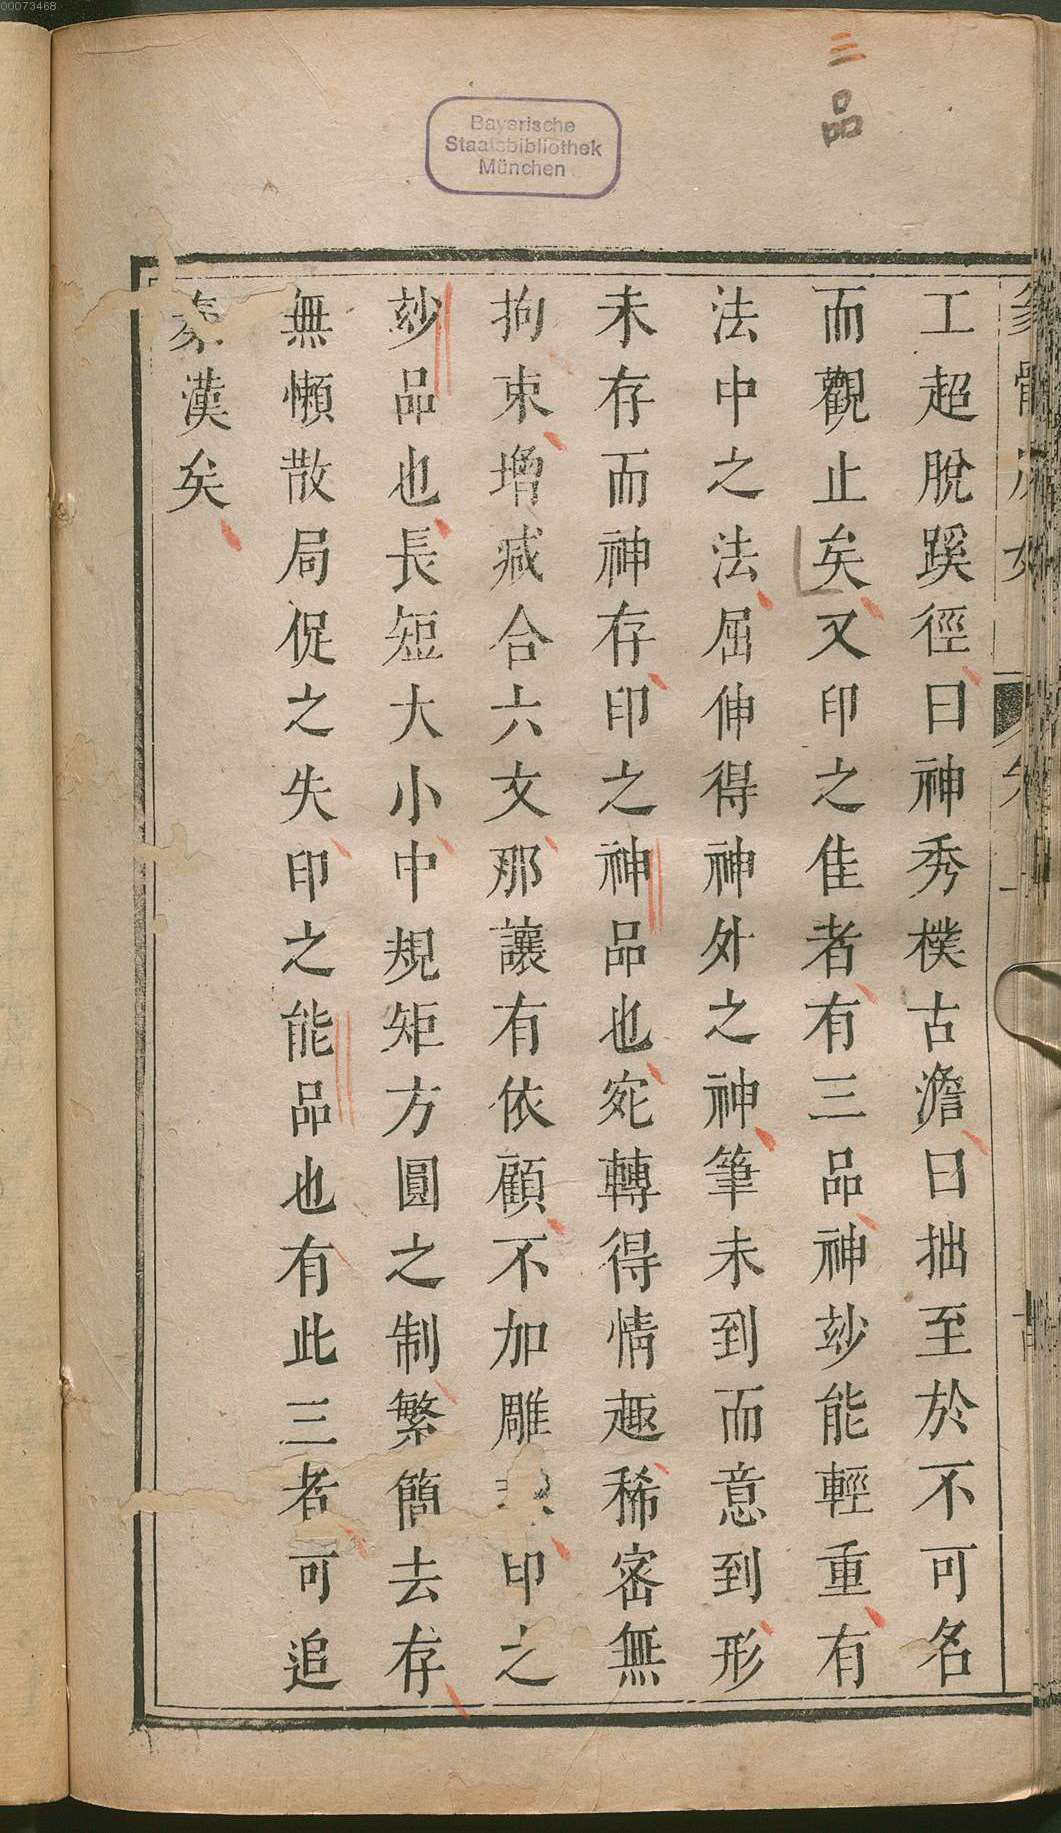 00073468
三品
Bayerische
Staatsbibliothek
München
工超脫蹊徑曰神秀樸古澹曰拙至於不可名
而觀止矣又印之佳者有三品神玅能輕重有
法中之法屈伸得神外之神筆未到而意到形
未存而神存印之神品也宛轉得情趣稀密無
拘束增減合六文那讓有依顧不加雕印之
玅品也長短大小中規矩方圓之制繁簡去存
無懶散局促之失印之能品也有此三者可追
秦漢矣